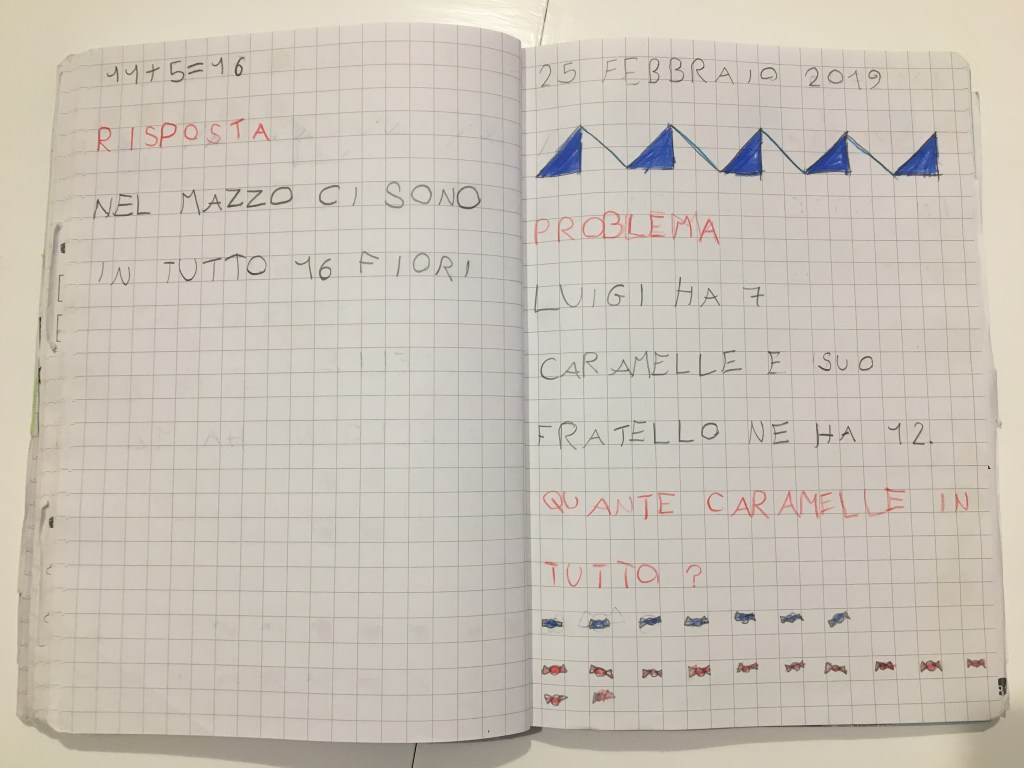 11+5=16
RISPOSTA
NEL MAZZO CI SONO
IN TUTTO 16 FIORI
25 FEBBRAIO 2019
PROBLEMA
LUIGI HA 7
CARAMELLE E SUO
FRATELLO NE HA 12.
QUANTE CARAMELLE IN
TUTTO ?